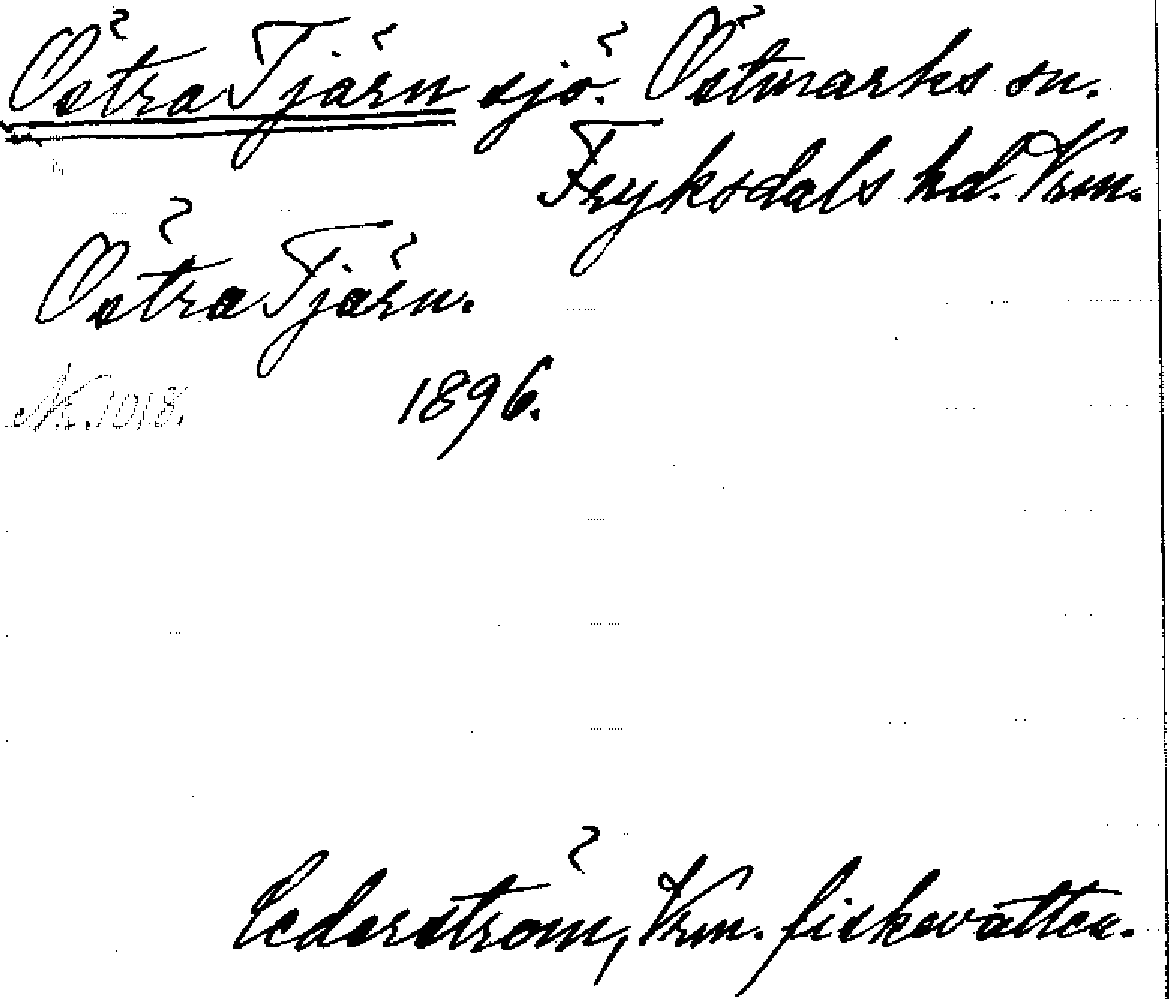 Östra Tjärn sjö. Östmarks sn.
Fryksdals hd. Vrm.
Östra Tjärn.
Nr. 1018. 1896.
Cederström, Vrm. fiskevatten.